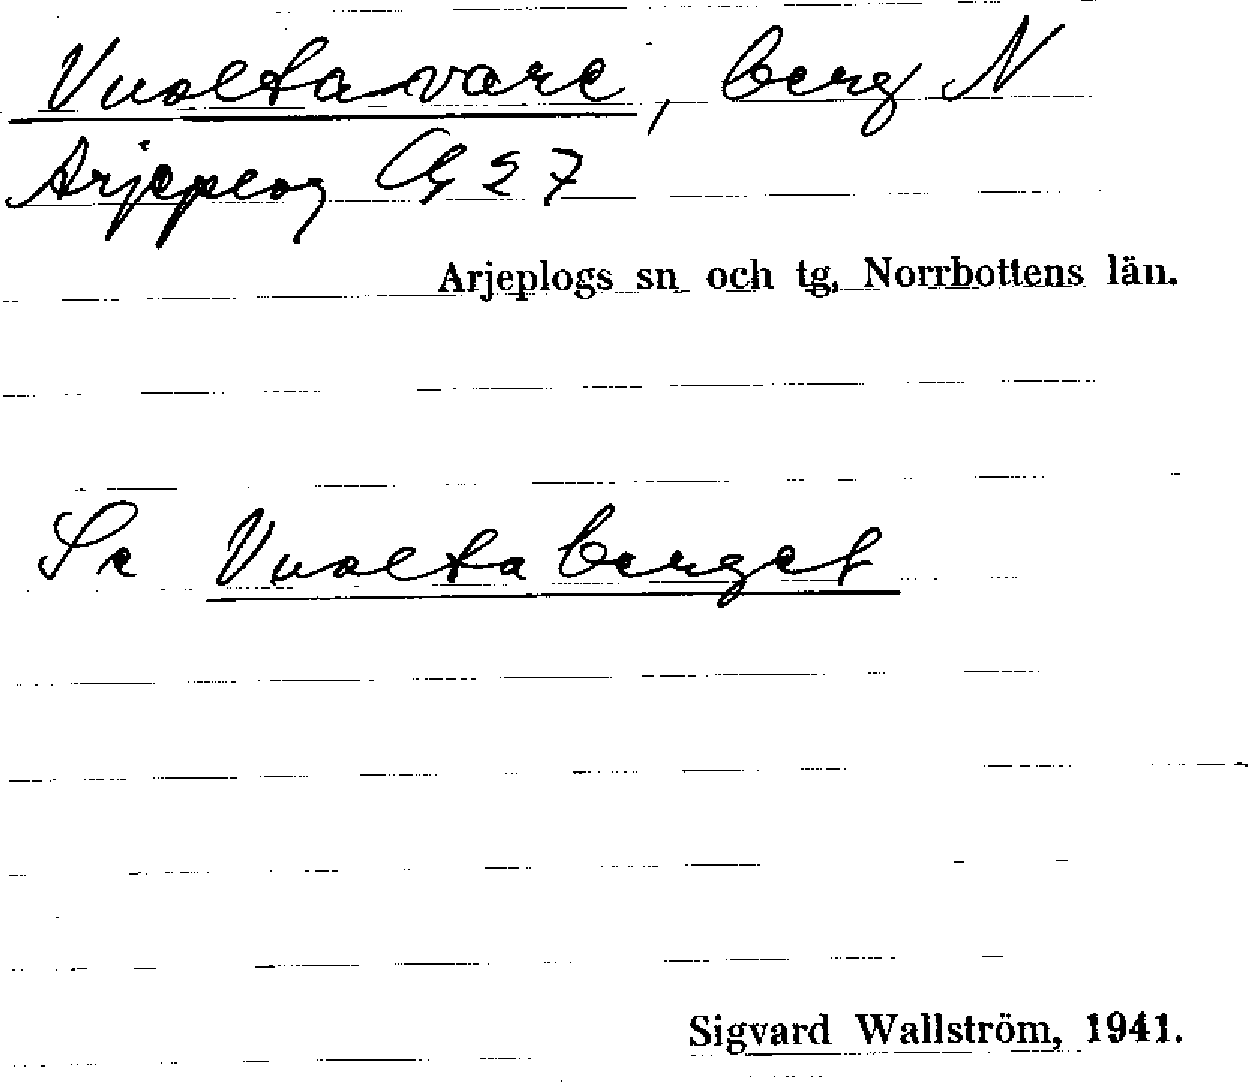 Vuoltavare, berg N
Arjeplog G 27
Arjeplogs sn och tg, Norrbottens län.
Se Vuoltaberget
Sigvard Wallström, 1941.